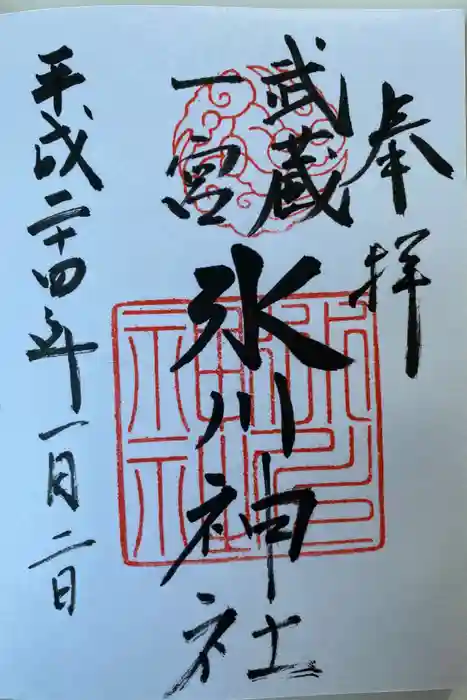 奉拝
武蔵
一宮
氷川神社
平成二十四年一月二日